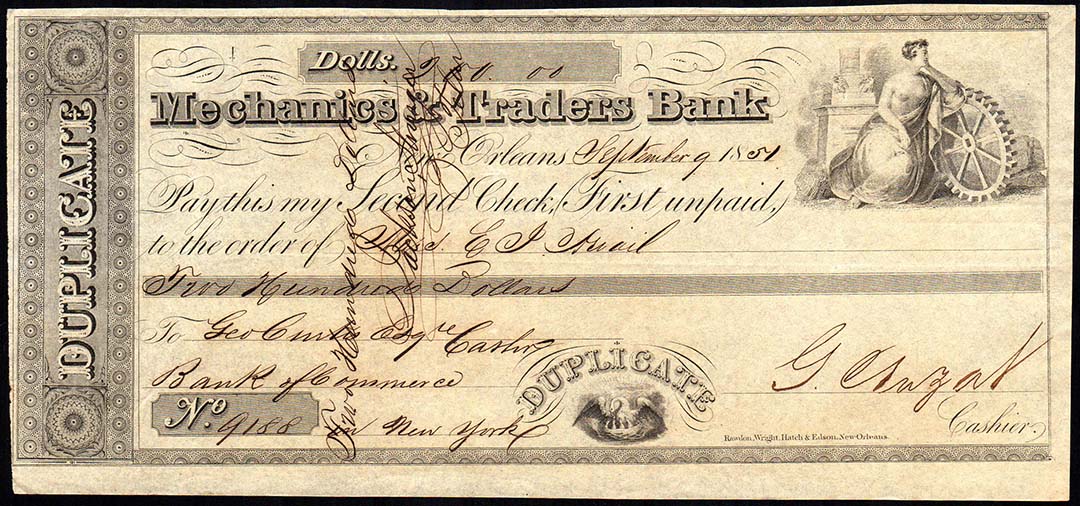 DUPLICATE
Dolls. 200.00
Mechanics & Traders Bank
New Orleans September 9 1851
Pay this my Second Check, First unpaid,
to the order of E J
Two Hundred Dollars
To Geo Curtis Esqre Cashr
Bank of Commerce
No 9188 New York
DUPLICATE
G. Cruzat
Cashier.
Rawdon, Wright, Hatch & Edson, New-Orleans.
Two Hundred Dollars